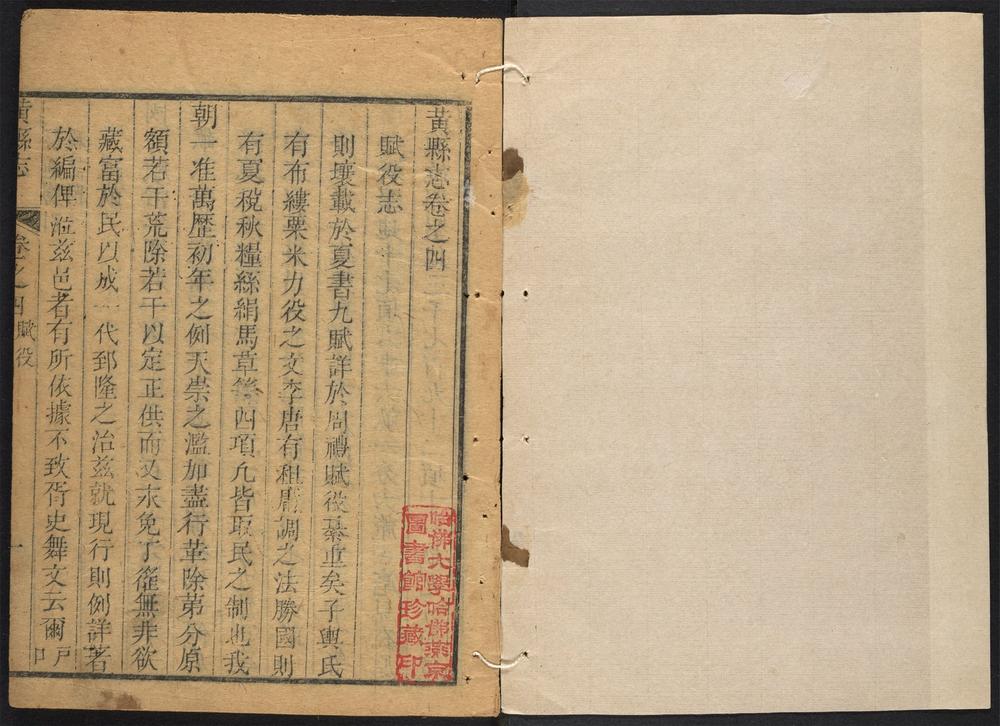 黃縣志卷之四
賦役志
則壤載於夏書九賦詳於周禮賦役綦重矣子輿氏
有布縷粟米力役之文李唐有租庸調之法勝國則
有夏稅秋糧絲絹馬草等四項凢皆取民之制也我
朝一准萬歷初年之例天崇之濫加盡行革除第分原
額若干荒除若干以定正供而又永免丁徭無非欲
藏富於民以成一代郅隆之治兹就現行則例詳著
於編俾涖兹邑者有所依據不致胥史舞文云爾
戸口
黃縣志
卷之四賦役
一
哈佛大學哈佛燕京
圖書館珍藏印